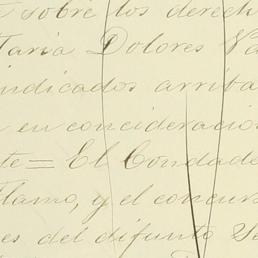 sobre los derech
Maria Dolores Va
indicados arriba
en concideracio
te= El Condade
Alamo, y el concur
es del difunto Se